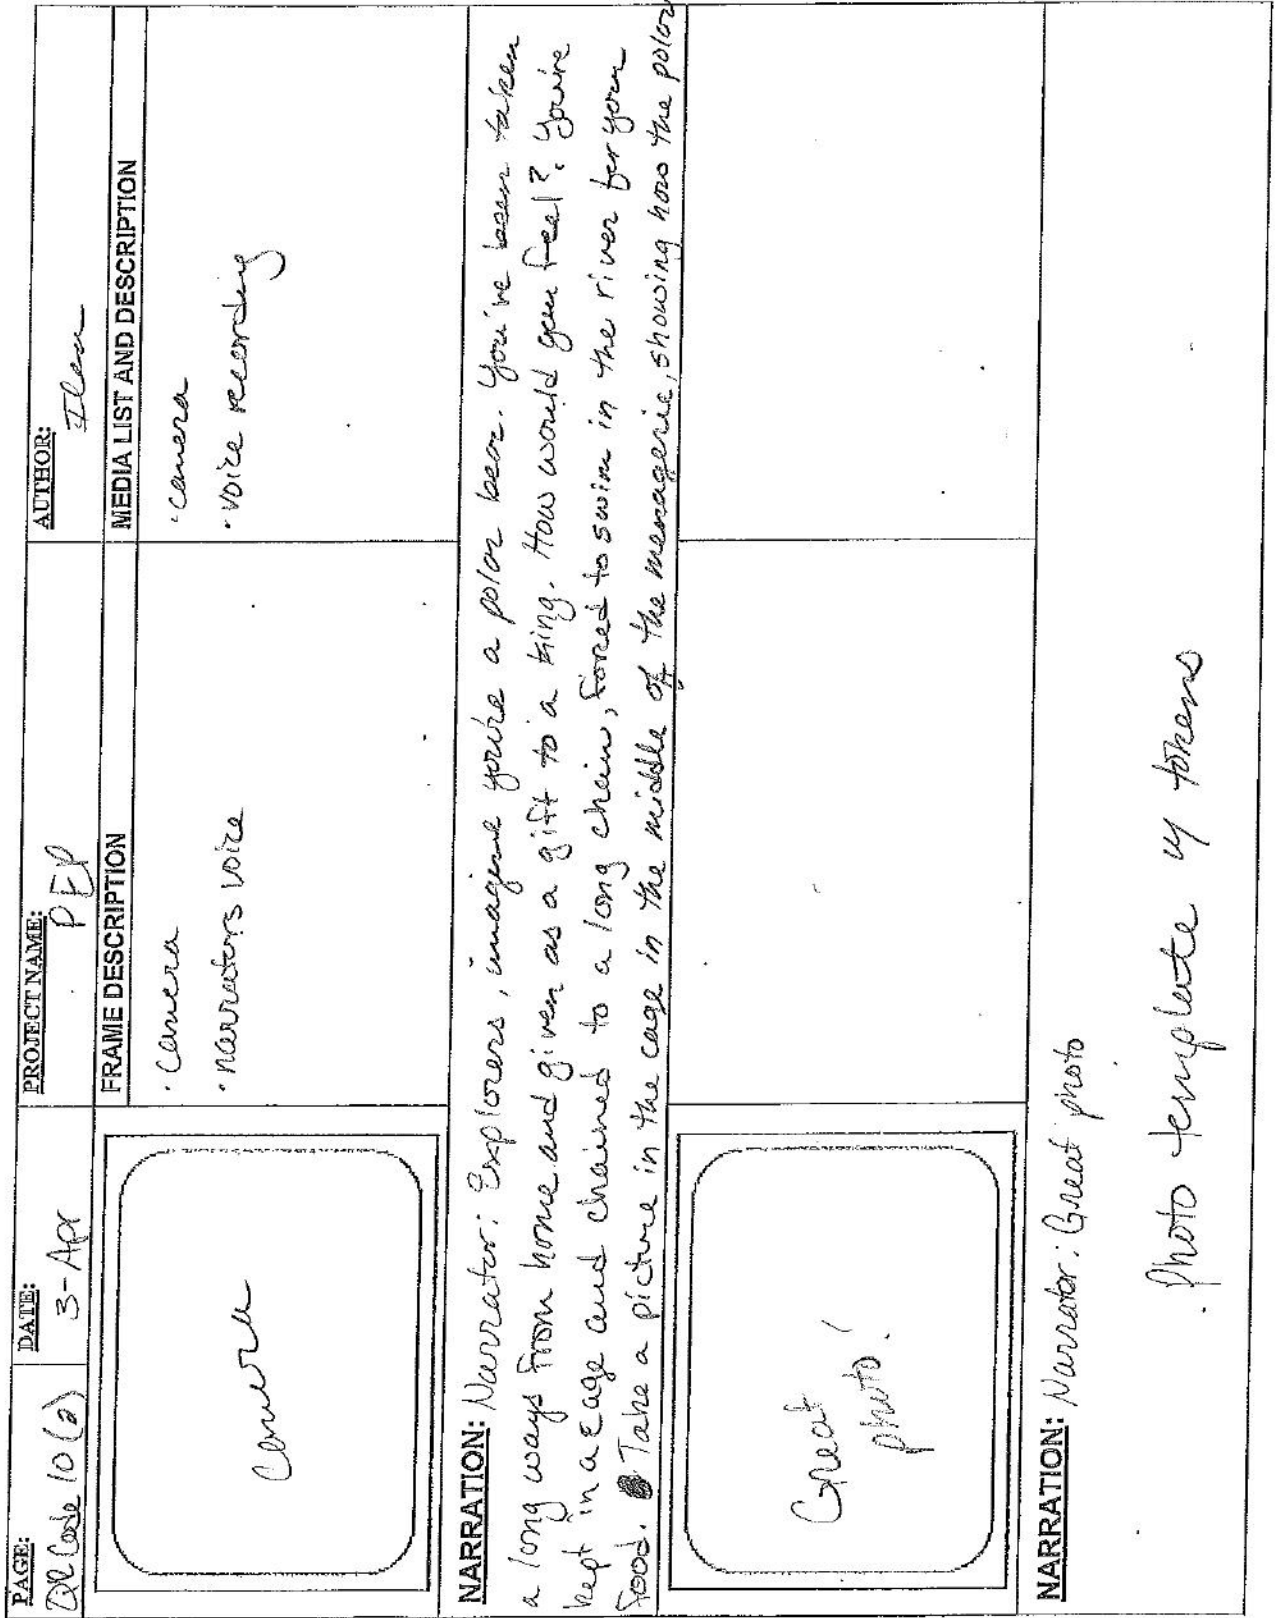 PAGE: DATE: PROJECT NAME: AUTHOR:
QR Code 10 (a) 3-Apr PEP Ilen
FRAME DESCRIPTION MEDIA LIST AND DESCRIPTION
camera
· camera
· narrators voice
· camera
· voice recording
NARRATION: Narrator: Explorers, imagine you're a polar bear. You've been taken
a long ways from home and given as a gift to a king. How would you feel? You're
kept in a cage and chained to a long chain, forced to swim in the river for your
food. Take a picture in the cage in the middle of the menagerie, showing how the polar
Great
photo!
NARRATION: Narrator: Great photo
· Photo template w/ tokens